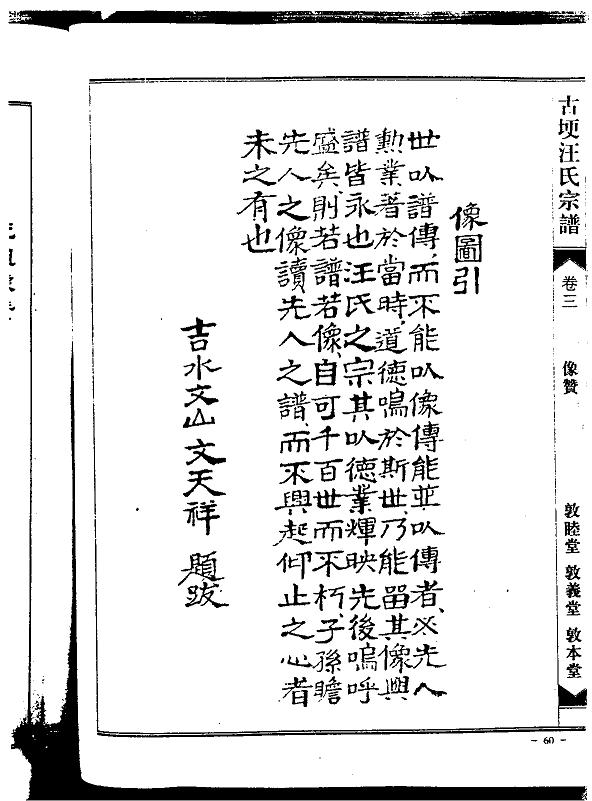 古埂汪氏宗譜
卷三
像贊
敦睦堂 敦義堂 敦本堂
像圖引
世以譜傳、而不能以像傳、能並以傳者、必先人
勲業著於當時、道德鳴於斯世、乃能留其像與
譜皆永也汪氏之宗其以德業輝映先後嗚呼
盛矣、則若譜若像、自可千百世而不朽、子孫瞻
先人之像讀先人之譜、而不興起仰止之心者
未之有也
吉水文山文天祥 題跋
- 60 -